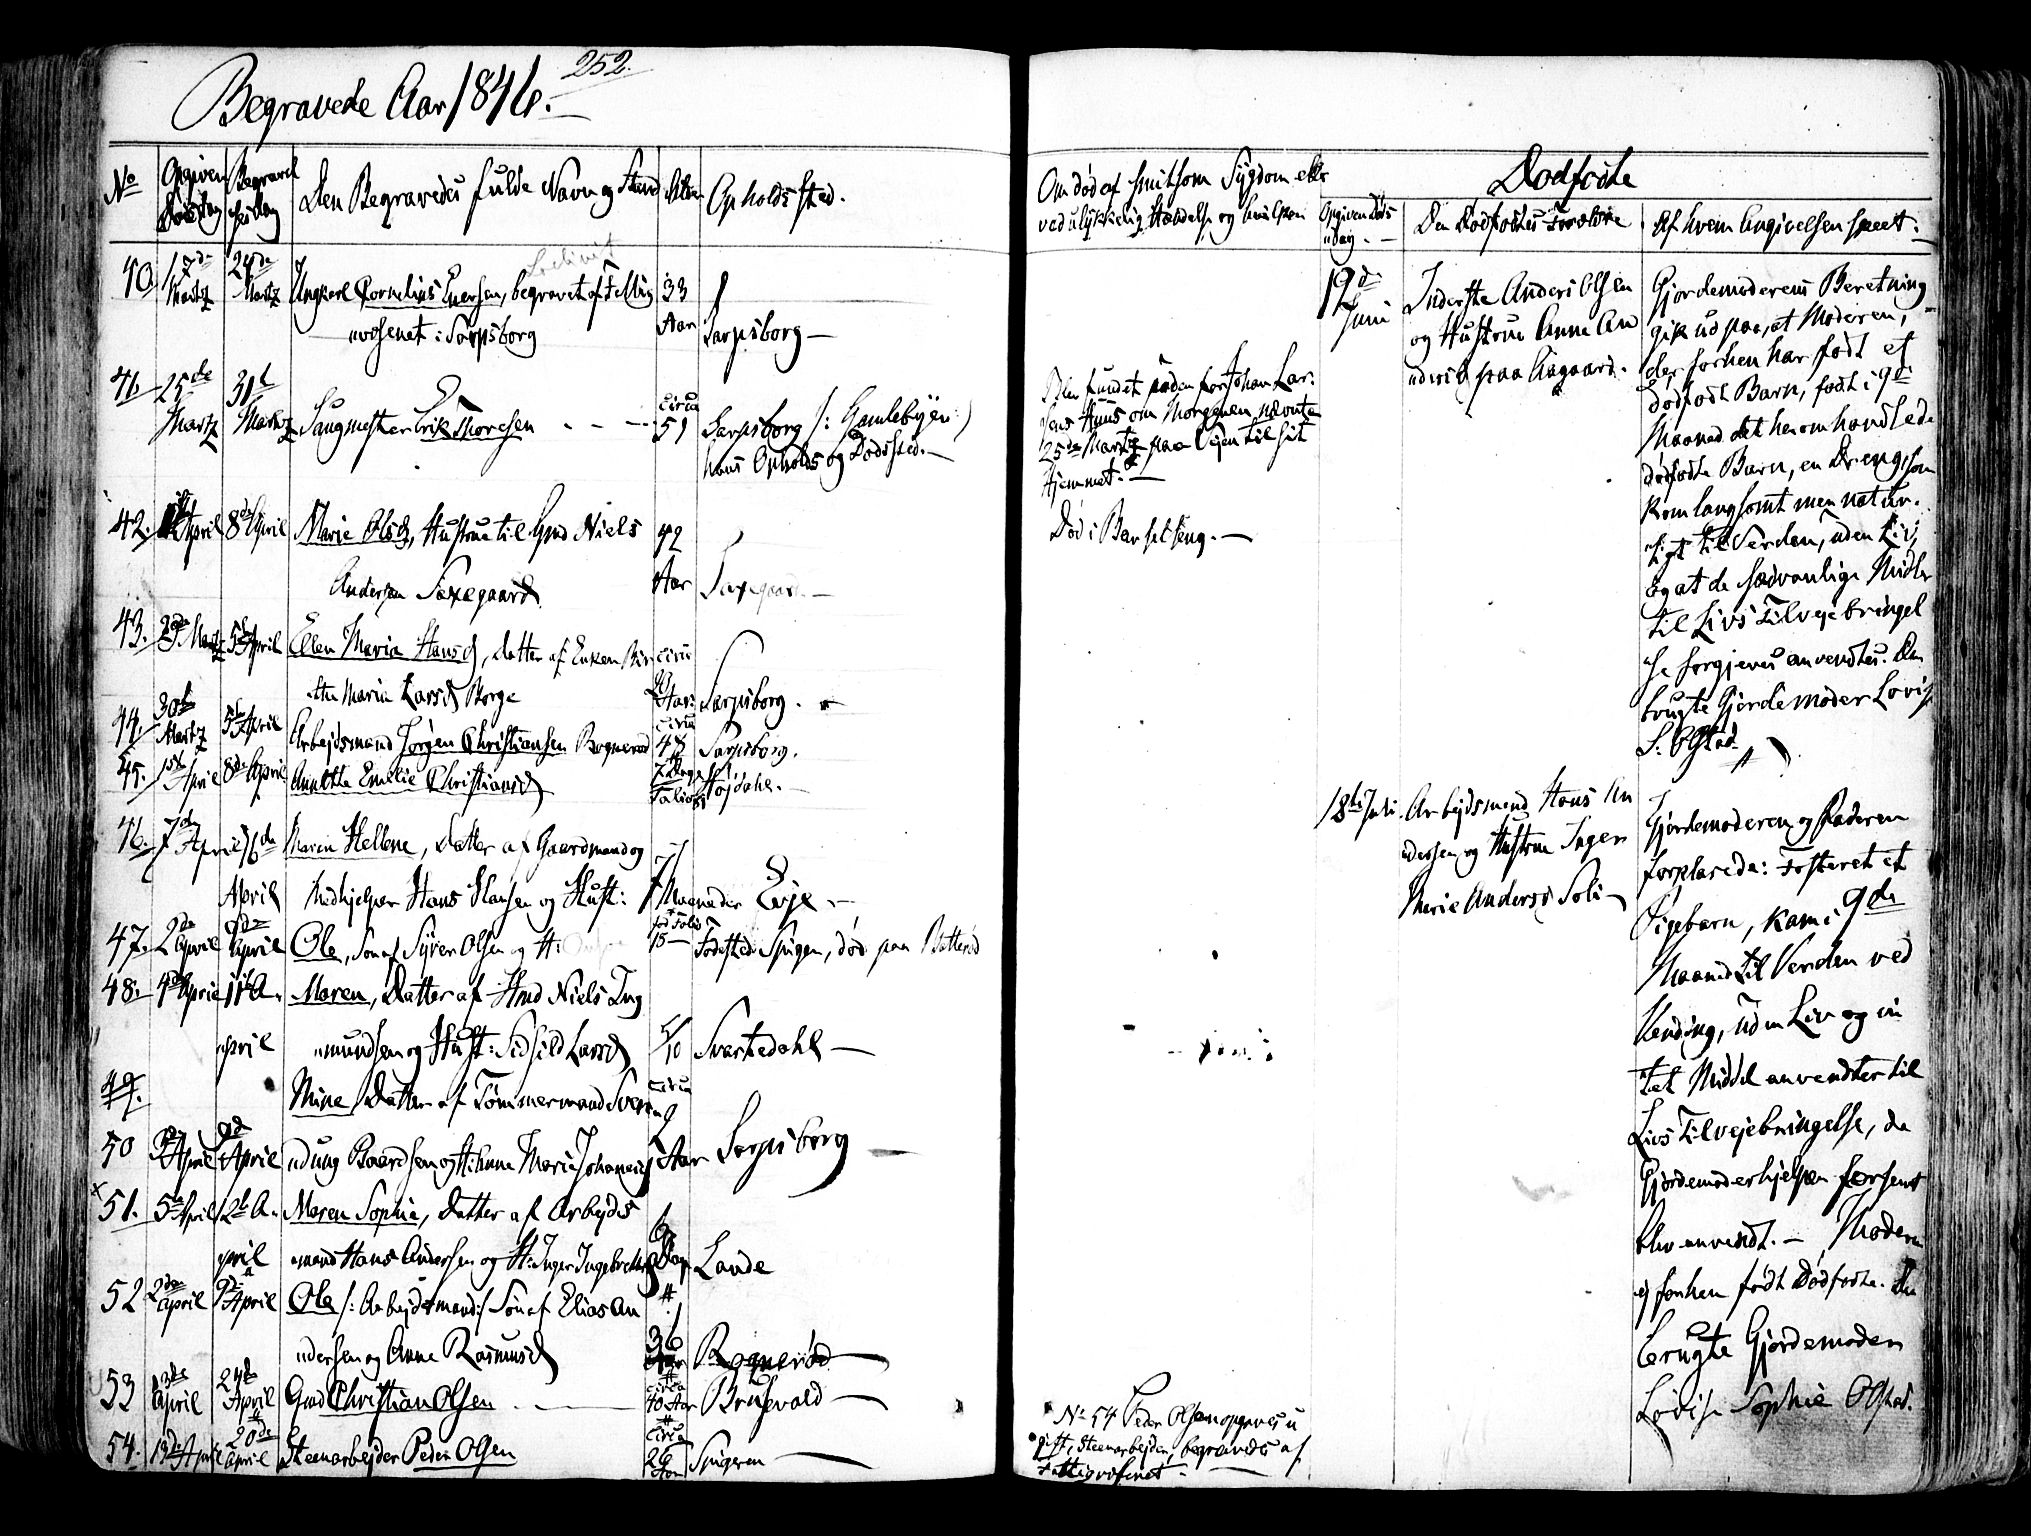 252.
Begravede Aar 1846.
No
Opgiven Dødsdag
Begravelsesdag
Den Begravedes fulde Navn og Stand
Alder
Opholdssted.
40. 17de Martz 24de Martz Ungkarl Cornelius Enersen, begravet af Fattig 33 Aar
væsenet i Sarpsborg Sarpsborg
41. 25de Martz 31te Martz Saugmester Erik Thoresen circa 51 Sarpsborg /: Gamlebyen :)
hans Opholds og Dødssted.
42. April 8de April Marie Olsd, Hustrue til Gmd Niels 42
Andersen Saxegaard Aar Saxegaard
43. Martz 5te April Ellen Maria Hansd, Datter af Enken Bir circa
the Maria Larsd Borge Aar Sarpsborg.
44. 30te Martz 5te April Arbejdsmand Jørgen Christiansen Rognerød circa 48 Sarpsborg.
45. 1ste April 8de April Annette Emelie Christiansd 7 Dage Højdahl.
46. 7de April 16de Maren Hellene, Datter af Gaardmand og
April Medhjelper Hans Hansen og Hust: 7 Maaneder Evje
47. 2de April April Ole, Søn af Syver Olsen og H: 15 Fødested Spigen, død paa Batterød
48. 4de April 11te A- Maren, Datter af Hmd Niels Ing
pril mundsen og Hust: Sidsild Larsd 5/10 Svartedahl
49. Mine Datter af Tømmermand Sven circa 9
50 April April dung Baardsen og H: Anne Maria Johannesd Aar Sarpsborg
51. 5te April 12te A- Maren Sophie, Datter af Arbejds 6
pril mand Hans Andersen og H: Inger Ingebretsd Lande
52 2den April 9de April Ole /: Arbejdsmand :/ Søn af Elias An
dersen og Anne Rasmusd 36 Aar Rognerød
53 13de April 24de April Gmd Christian Olsen circa 40 Aar Brusevold
54. 13de April 20de April Steenarbejder Peder Olsen circa 26 Aar Spigeren
Om død af smitsom Sygdom eller
ved ulykkelig Hændelse og
Død fundet uden for Johan Lar-
sens Huus om Morgenen nævnte
25de Martz paa Vejen til sit
Hjemmet.
Død i Barselseng.
No 54 Peder Olsen opgaves u
gift, Steenarbejder, begraves af
Fattigvæsenet.
Dødfødte
Opgiven Døds dag.
Den Dødfødtes Forældre
Af hvem Angivelsen skeet.
19de Juni
Inderste Anders Olsen
og Hustrue Anne An
dersd paa Aagaard.
Gjordemoderens Beretning
gik ud paa, at Moderen,
der forhen har født et
dødfødt Barn, fødte i 9de
Maaned det herom handlede
dødfødte Barn, en Dreng, som
kom langsomt men natur-
ligt til Verden, uden Liv,
og at de sædvanlige Midler
til Livs Tilvejebringel
se forgjeves anvendtes. Den
brugte Gjordemoder Lovise
S. Olstad.
18de Juli.
Arbejdsmand Hans An
dersen og Hustrue Inger
Marie Andersd Soli
Gjordemoderen og Faderen
forklarede: Fosteret et
Pigebarn, kom i 9de
Maaned til Verden ved
Vending, uden Liv og in
tet Middel anvendtes til
Livs Tilvejebringelse, da
Gjordemoderhjelpen for seent
blev anvendt. Moderen
ej forhen født Dødfødte. Den
brugte Gjordemoder
Lovise Sophie Olstad.